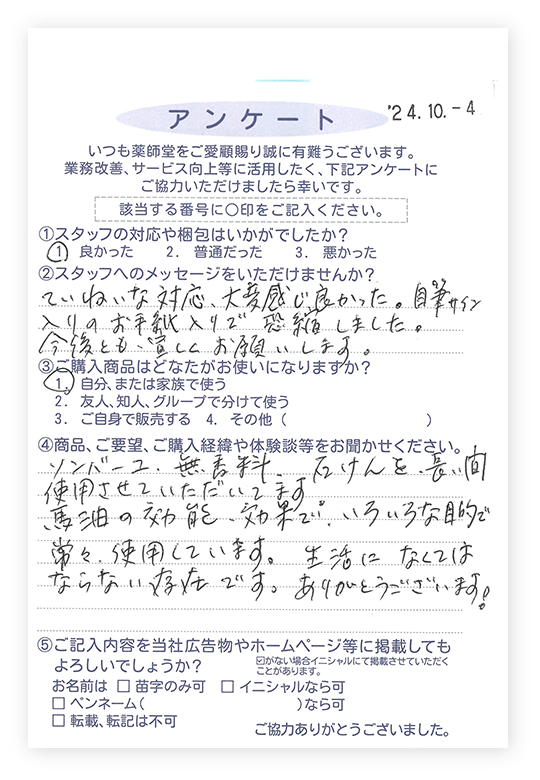 アンケート
'24.10.-4
いつも薬師堂をご愛顧賜り誠に有難うございます。
業務改善、サービス向上等に活用したく、下記アンケートに
ご協力いただけましたら幸いです。
該当する番号に○印をご記入ください。
①スタッフの対応や梱包はいかがでしたか？
1. 良かった 2. 普通だった 3. 悪かった
②スタッフへのメッセージをいただけませんか？
ていねいな対応、大変感じ良かった。自筆サイン
入りのお手紙入りで恐縮しました。
今後とも宜しくお願いします。
③ご購入商品はどなたがお使いになりますか？
1. 自分、または家族で使う
2. 友人、知人、グループで分けて使う
3. ご自身で販売する 4. その他（ ）
④商品、ご要望、ご購入経緯や体験談等をお聞かせください。
ソンバーユ・無香料、石けんを長い間
使用させていただいてます
馬油の効能・効果で、いろいろな目的で
常々、使用しています。生活になくては
ならない存在です。ありがとうございます!
⑤ご記入内容を当社広告物やホームページ等に掲載しても
よろしいでしょうか？
☑がない場合イニシャルにて掲載させていただく
ことがあります。
お名前は □ 苗字のみ可 □ イニシャルなら可
□ ペンネーム（ ）なら可
□ 転載、転記は不可
ご協力ありがとうございました。